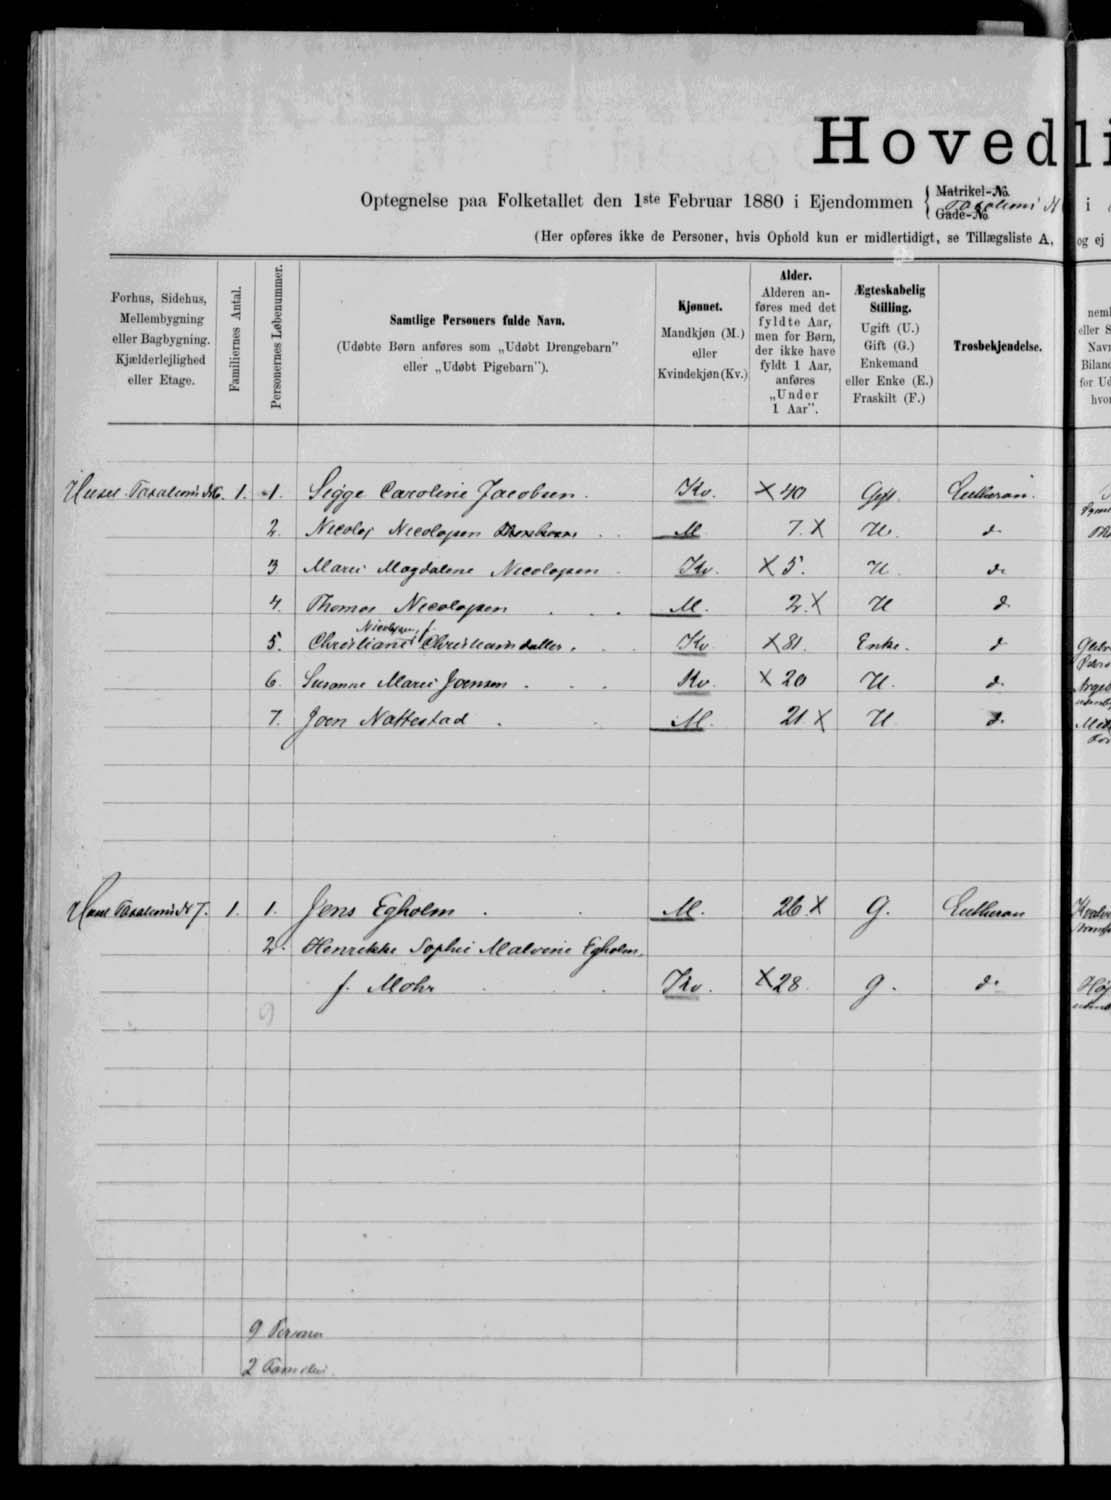 Hovedli
Optegnelse paa Folketallet den 1ste Februar 1880 i Ejendommen { Matrikel-No. Gade-No i
(Her opføres ikke de Personer, hvis Ophold kun er midlertidigt, se Tillægsliste A, og ej
Forhus, Sidehus, Mellembygning eller Bagbygning. Kjælderlejlighed eller Etage.
Familiernes Antal.
Personernes Løbenummer.
Samtlige Personers fulde Navn.
(Udøbte Børn anføres som „Udøbt Drengebarn" eller „Udøbt Pigebarn").
Kjønnet.
Mandkjøn (M.) eller Kvindekjøn (Kv.)
Alder.
Alderen anføres med det fyldte Aar, men for Børn, der ikke have fyldt 1 Aar, anføres „Under 1 Aar".
Ægteskabelig Stilling.
Ugift (U.) Gift (G.) Enkemand eller Enke (E.) Fraskilt (F.)
Trosbekjendelse.
1. 1. Sigge Caroline Jacobsen. Kv. X 40 Gift. Lutheran.
2. Nicolaj Nicolajsen M 7. X U. do
3 Marie Magdalene Nicolajsen Kv. X 5. U. do
4. Thomas Nicolajsen M. 2. X U d
5. Christiane Nicolajsen, f. Christiansdatter. Kv. X 81. Enke. d
6. Susanne Marie Joensen Kv. X 20 U. d.
7. Joen Nattestad M. 21 X U d.
1. 1. Jens Egholm M. 26 X G. Lutheran
2. Henrikke Sophie Malvine Egholm,
f. Mohr Kv. X 28 g. do
9
9 Personer
2 Familier